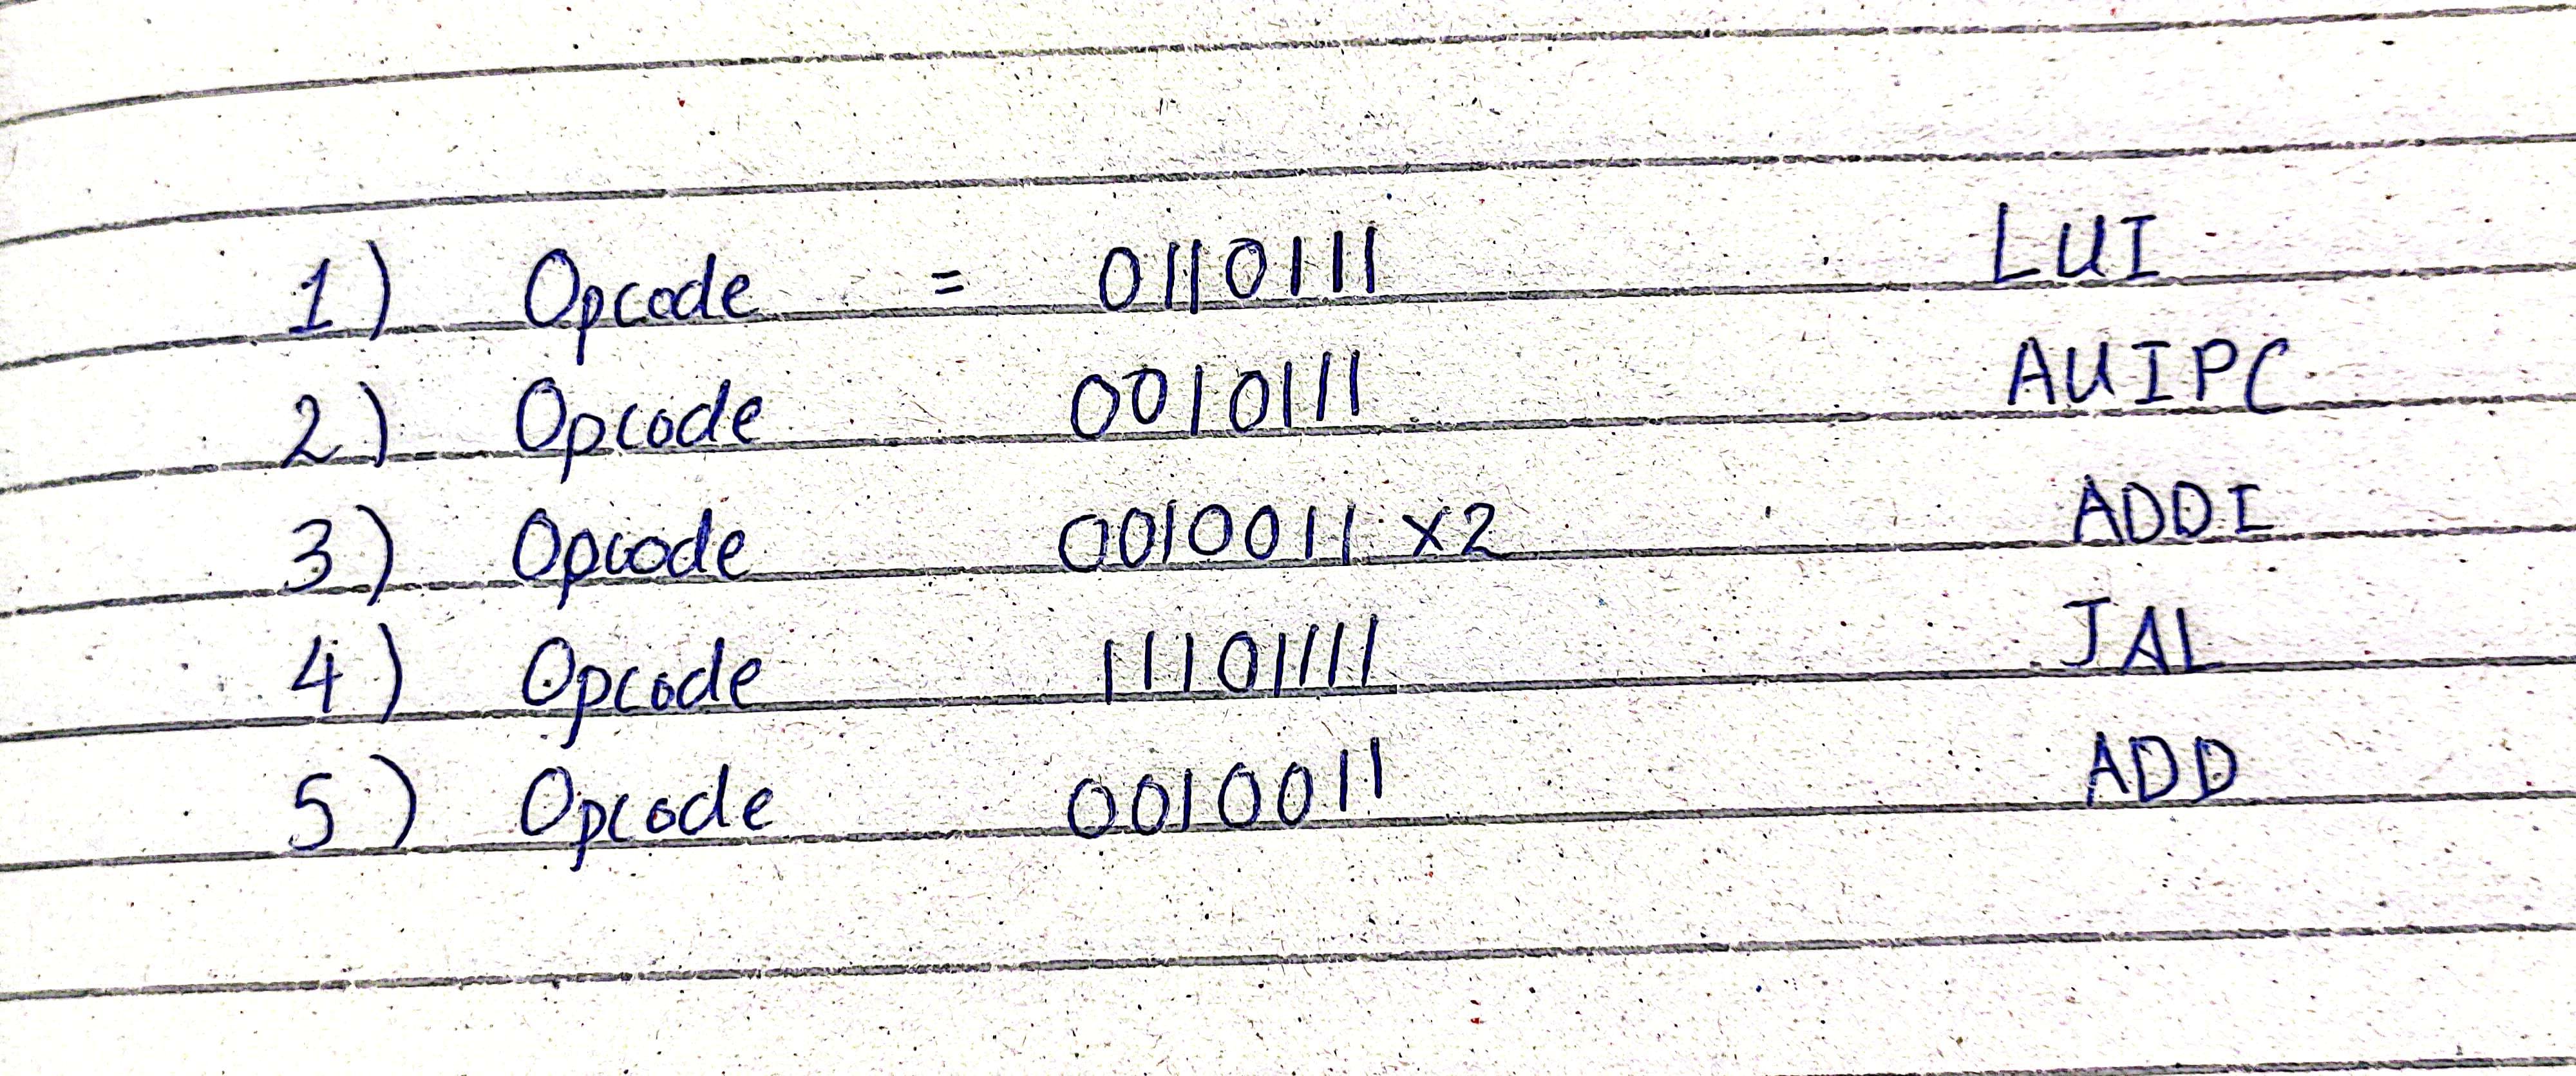 1) Opcode = 0110111 LUI
2) Opcode 0010111 AUIPC
3) Opcode 0010011 x2 ADDI
4) Opcode 11101111 JAL
5) Opcode 0010011 ADD